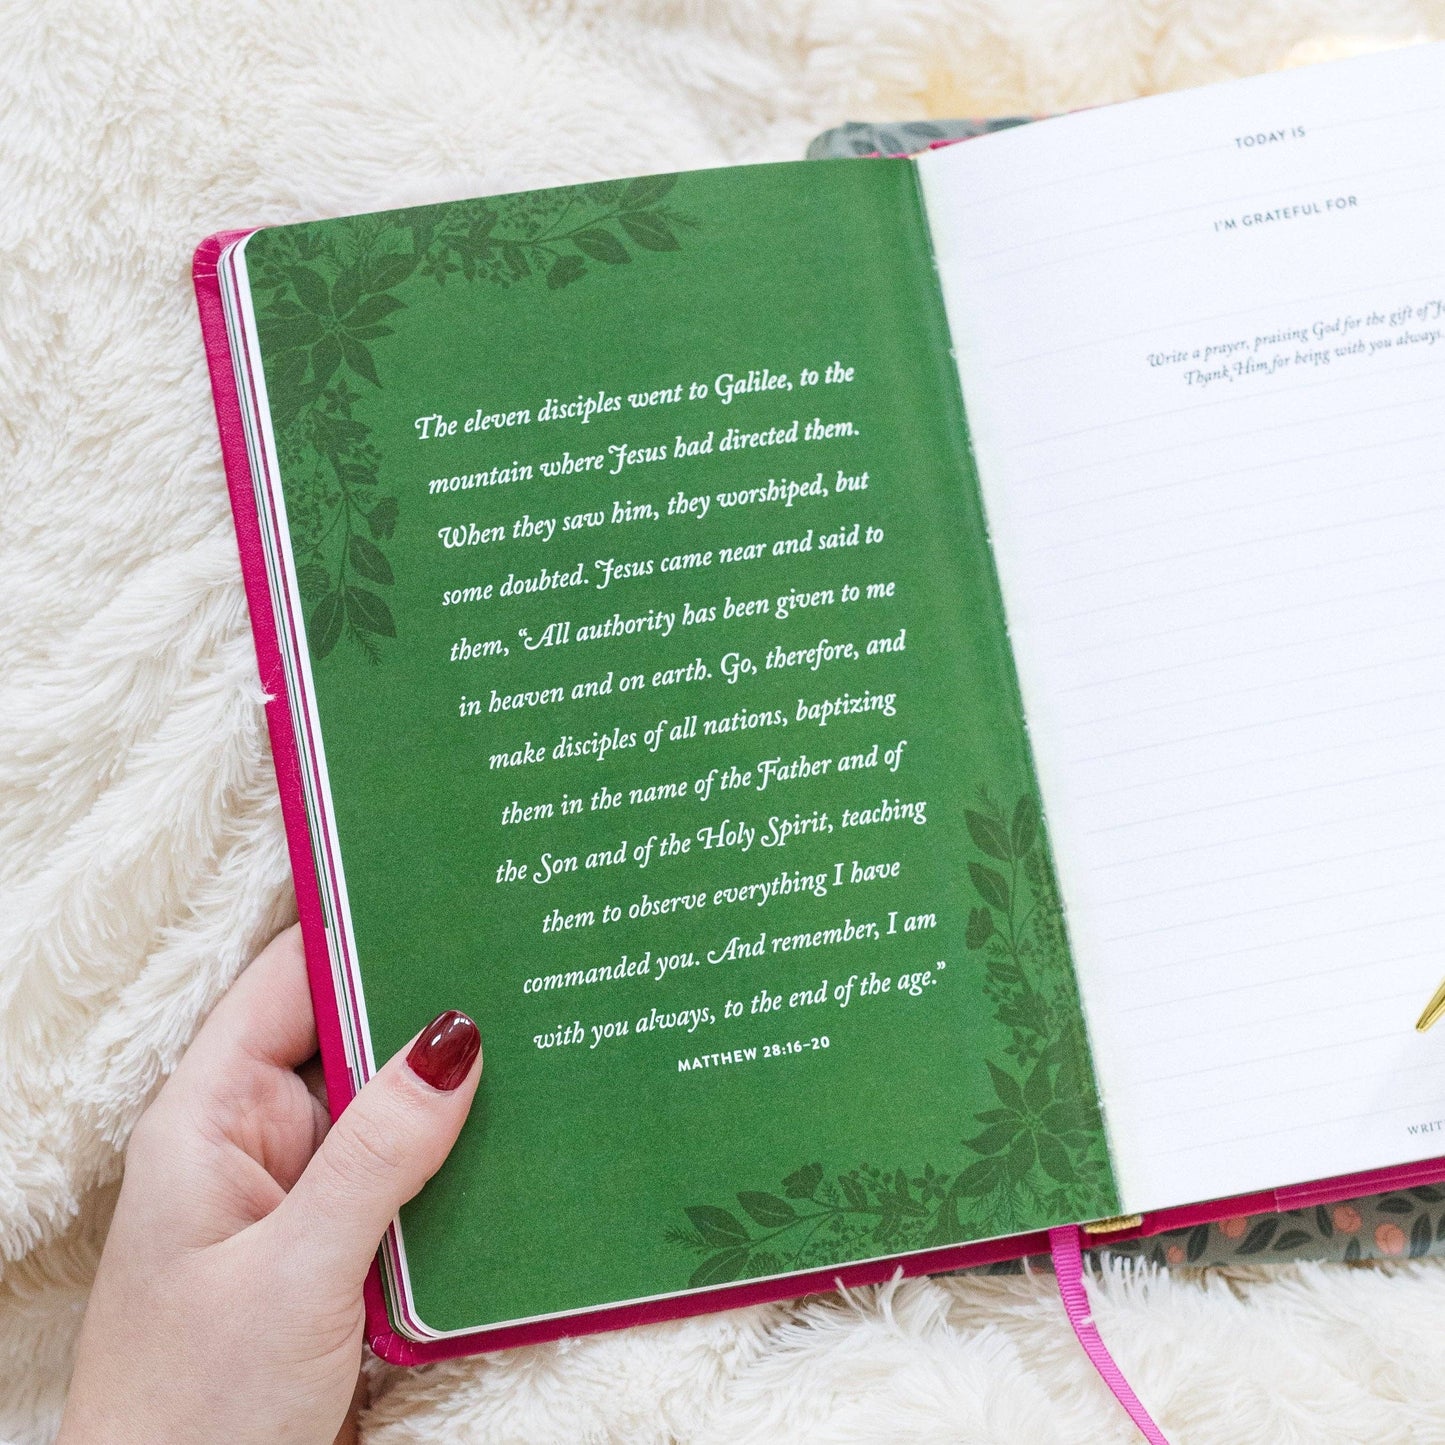 The eleven disciples went to Galilee, to the
mountain where Jesus had directed them.
When they saw him, they worshiped, but
some doubted. Jesus came near and said to
them, “All authority has been given to me
in heaven and on earth. Go, therefore, and
make disciples of all nations, baptizing
them in the name of the Father and of
the Son and of the Holy Spirit, teaching
them to observe everything I have
commanded you. And remember, I am
with you always, to the end of the age.”
MATTHEW 28:16–20
TODAY IS
I'M GRATEFUL FOR
Write a prayer, praising God for the gift of
Thank Him for being with you always.